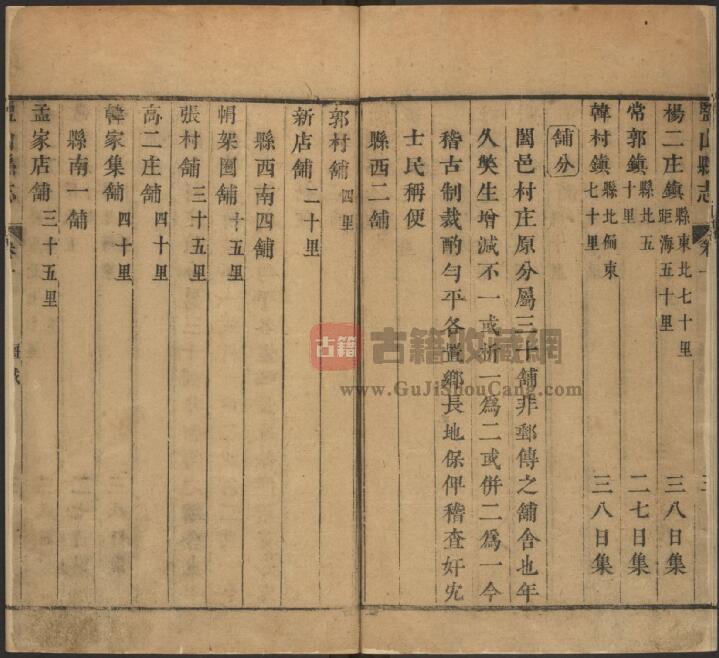 鹽山縣志
卷一
楊二庄鎮縣東北七十里距海五十里 三八日集
常郭鎮縣北五十里 二七日集
韓村鎮縣北偏東七十里 三八日集
舖分
闔邑村庄原分屬三十舖非郵傳之舖舍也年
久獘生增減不一或折一爲二或併二爲一今
稽古制裁酌勻平各置鄉長地保俾稽查奸宄
士民稱便
縣西二舖
郭村舖四里
新店舖二十里
縣西南四舖
帽架圈舖十五里
張村舖三十五里
高二庄舖四十里
韓家集舖四十里
縣南一舖
孟家店舖三十五里
古籍
古籍收藏網
www.GuJiShouCang.com